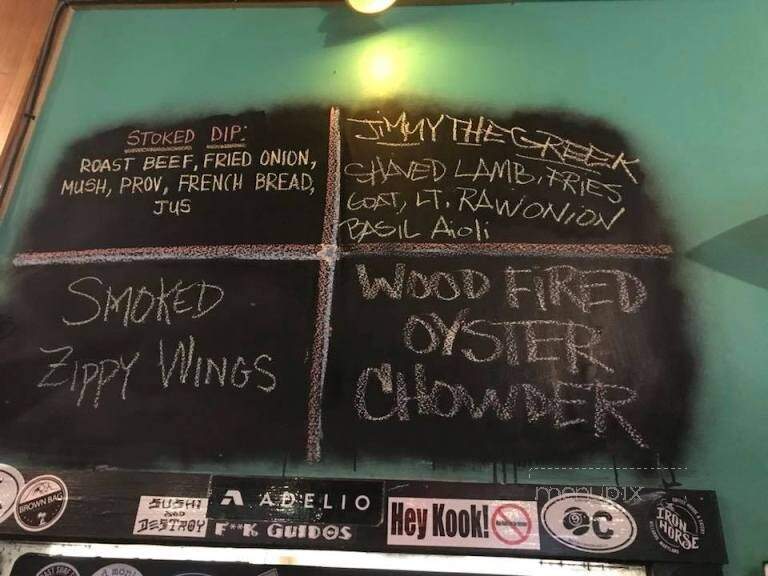 STOKED DIP:
ROAST BEEF, FRIED ONION,
MUSH, PROV, FRENCH BREAD,
JUS
JIMMY THE GREEK
SHAVED LAMB, FRIES
GOAT, LT. RAW ONION
BASIL AIOLI
SMOKED
ZIPPY WINGS
WOOD FIRED
OYSTER
CHOWDER
menupix
BROWN BAG
SUSHI
AND
DESTROY
ADELIO
F**K GUIDOS
Hey Kook!
OC
IRON
HORSE